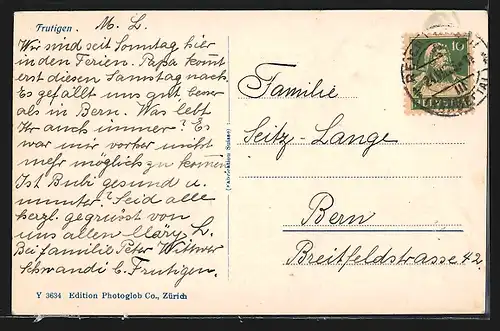 Frutigen.
M. L.
Wir sind seit Sonntag hier
in den Ferien. Papa kommt
erst diesen Samstag nach.
Es gefällt uns gut, besser
als in Bern. Was lebt
Ihr auch immer? Es
war mir vorher nicht
mehr möglich zu kommen.
Ist Bubi gesund u.
munter? Seid alle
herzl. gegrüsst von
uns allen Märy L.
Bei Familie Peter Wittwer
Schwandi b. Frutigen.
Y 3634 Edition Photoglob Co., Zürich
(Fabrication Suisse)
10
HELVETIA
Familie
Seitz-Lange
Bern
Breitfeldstrasse 42.